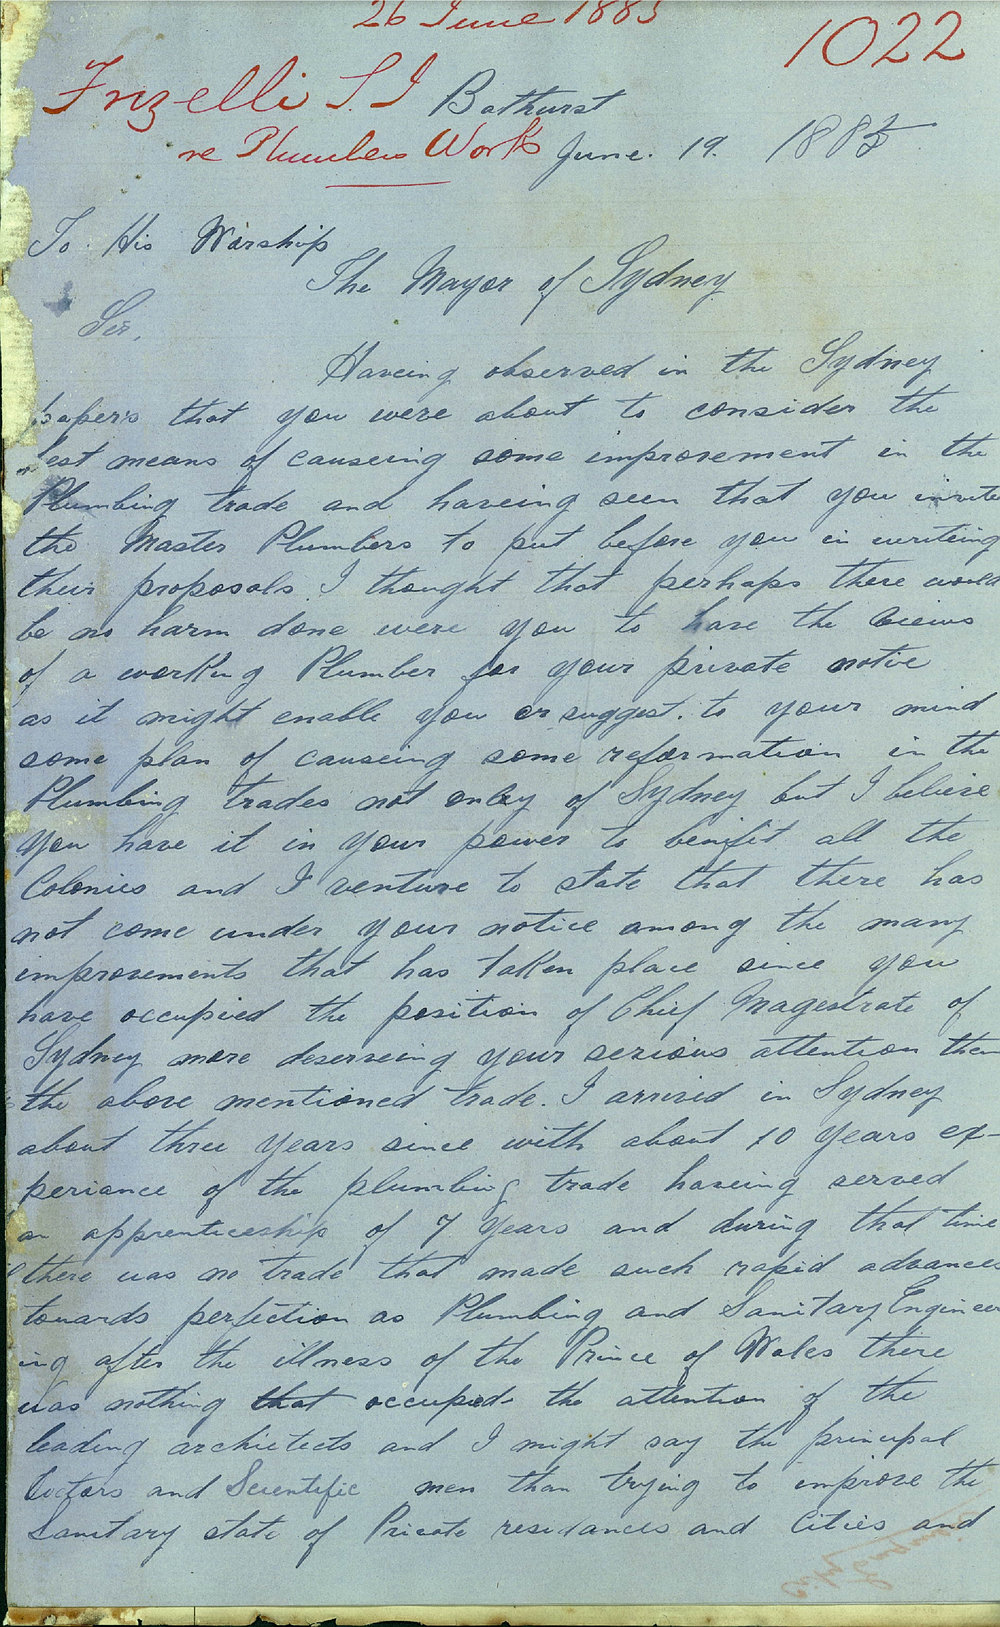 26 June 1885
1022
Frizelli S. J
Bathurst
re Plumbers Work
June. 19. 1885
To His Warship
The Mayor of Sydney
Sir,
Haveing observed in the Sydney
papers that you were about to consider the
best means of causeing some improvement in the
Plumbing trade and haveing seen that you invite
the Master Plumbers to put before you in writeing
their proposals I thought that perhaps there would
be no harm done were you to have the views
of a working Plumber for your private notice
as it might enable you or suggest. to your mind
some plan of causeing some reformation in the
Plumbing trades not only of Sydney but I believe
you have it in your power to benifit all the
Colonies and I venture to state that there has
not come under your notice among the many
improvements that has taken place since you
have occupied the position of Chief Magestrate of
Sydney more deserveing your serious attention then
the above mentioned trade. I arrived in Sydney
about three years since with about 10 years ex-
periance of the plumbing trade haveing served
an apprenticeship of 7 years and during that time
there was no trade that made such rapid advances
towards perfection as Plumbing and Sanitary Engineer
ing after the illness of the Prince of Wales there
was nothing that occupied the attention of the
leading archietects and I might say the principal
Doctors and Scientific men than trying to improve the
Sanitary state of Private residances and Cities and